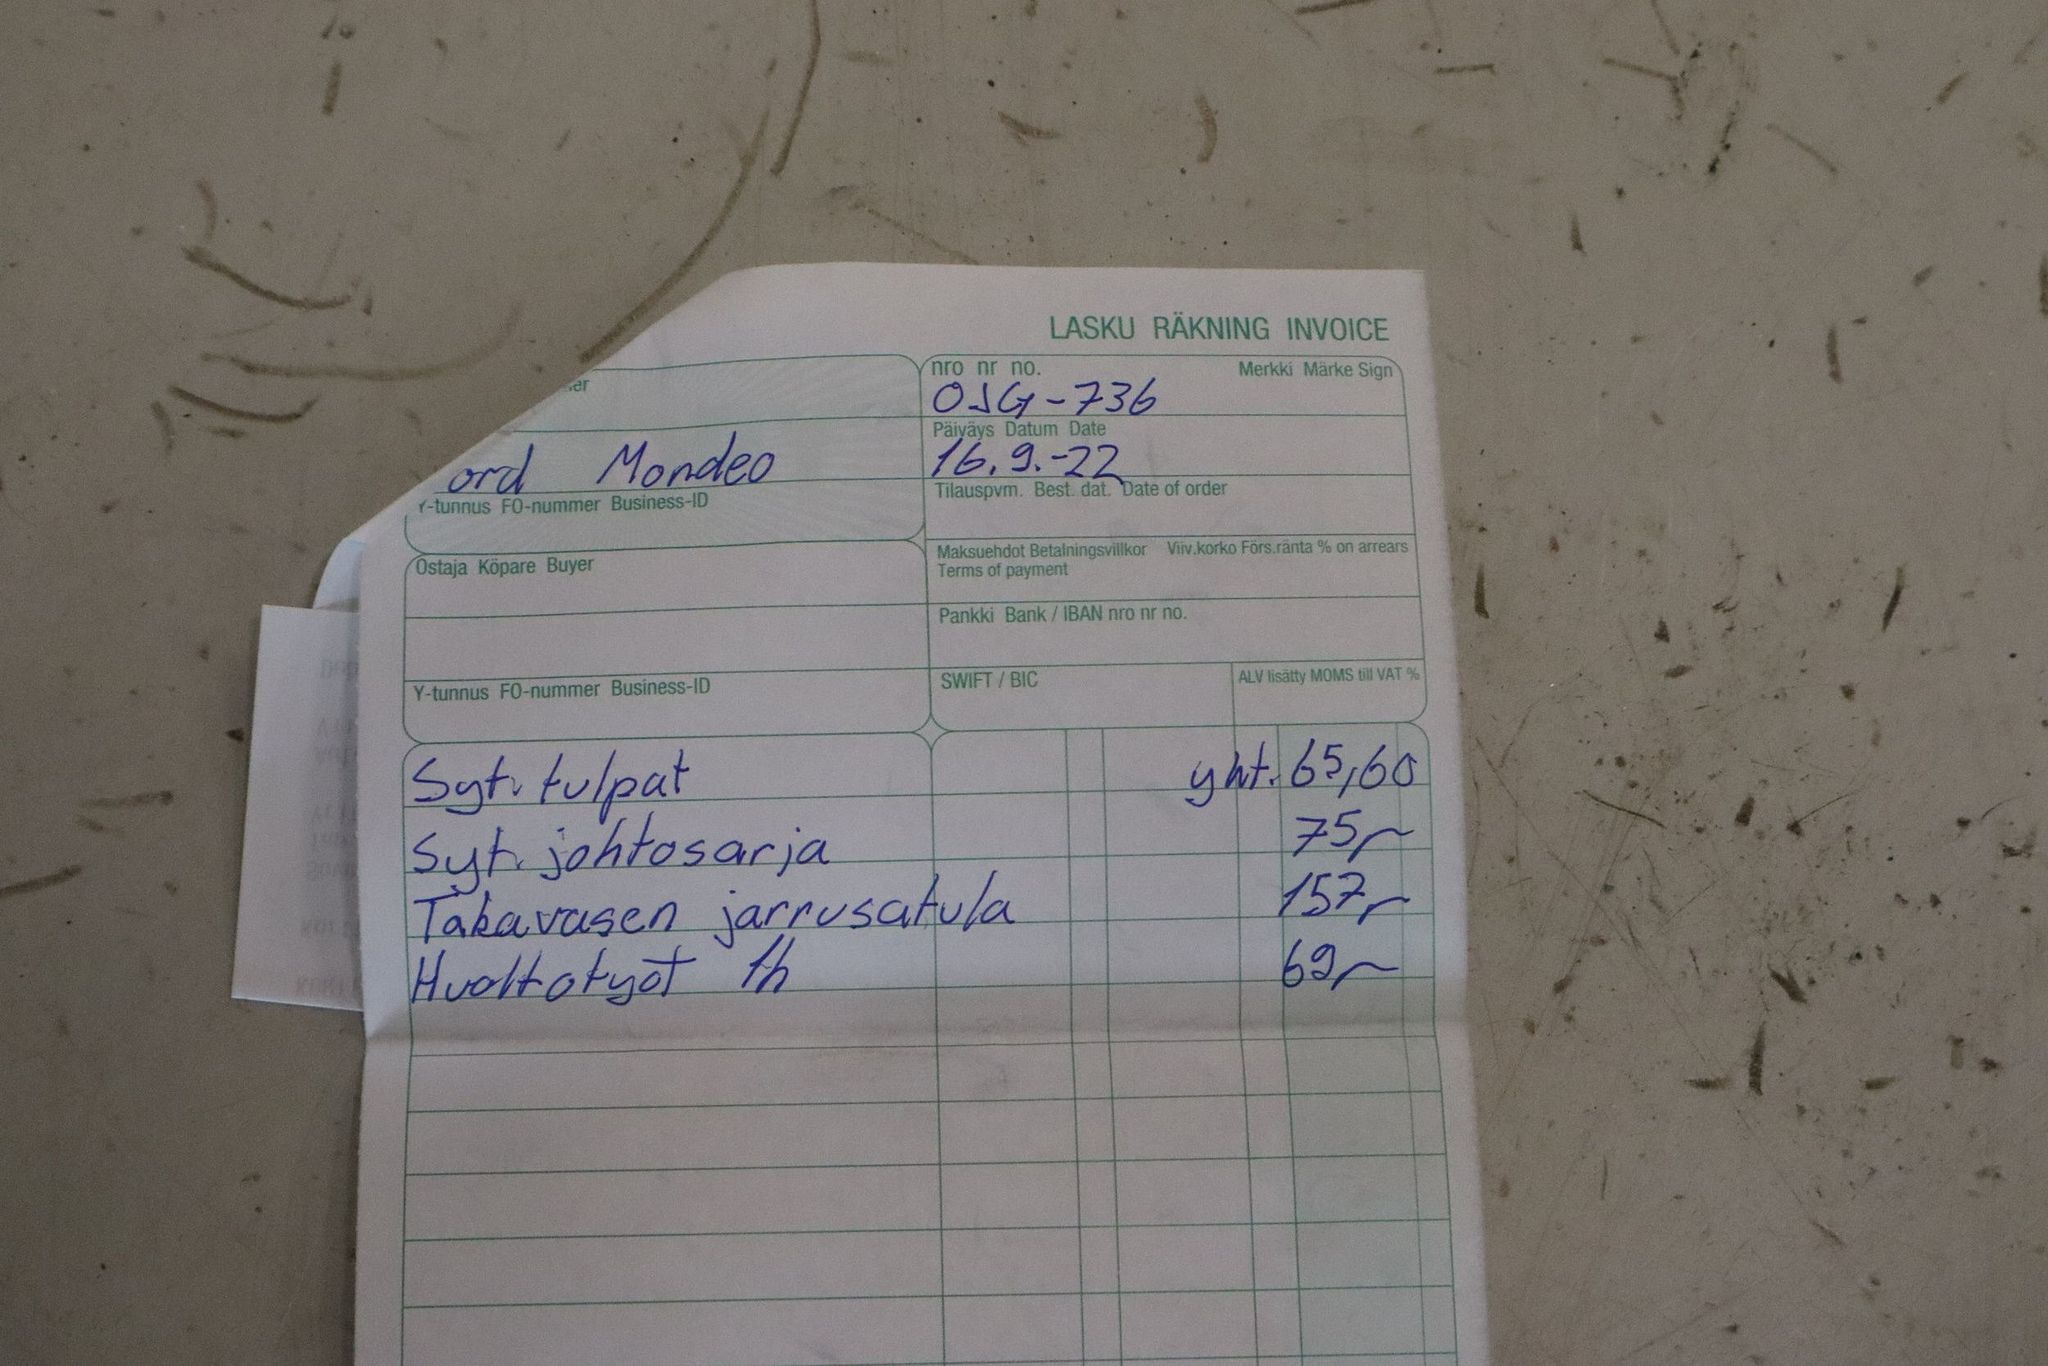 LASKU RÄKNING INVOICE
er
nro nr no. Merkki Märke Sign
OJG-736
ord Mondeo
Päiväys Datum Date
16.9.-22
Y-tunnus FO-nummer Business-ID
Tilauspvm. Best. dat. Date of order
Ostaja Köpare Buyer
Maksuehdot Betalningsvillkor Viiv.korko Förs.ränta % on arrears
Terms of payment
Pankki Bank / IBAN nro nr no.
Y-tunnus FO-nummer Business-ID
SWIFT / BIC
ALV lisätty MOMS till VAT %
Syt. tulpat yht. 65,60
Syt. johtosarja 75,-
Takavasen jarrusatula 157,-
Huoltotyöt 1h 69,-